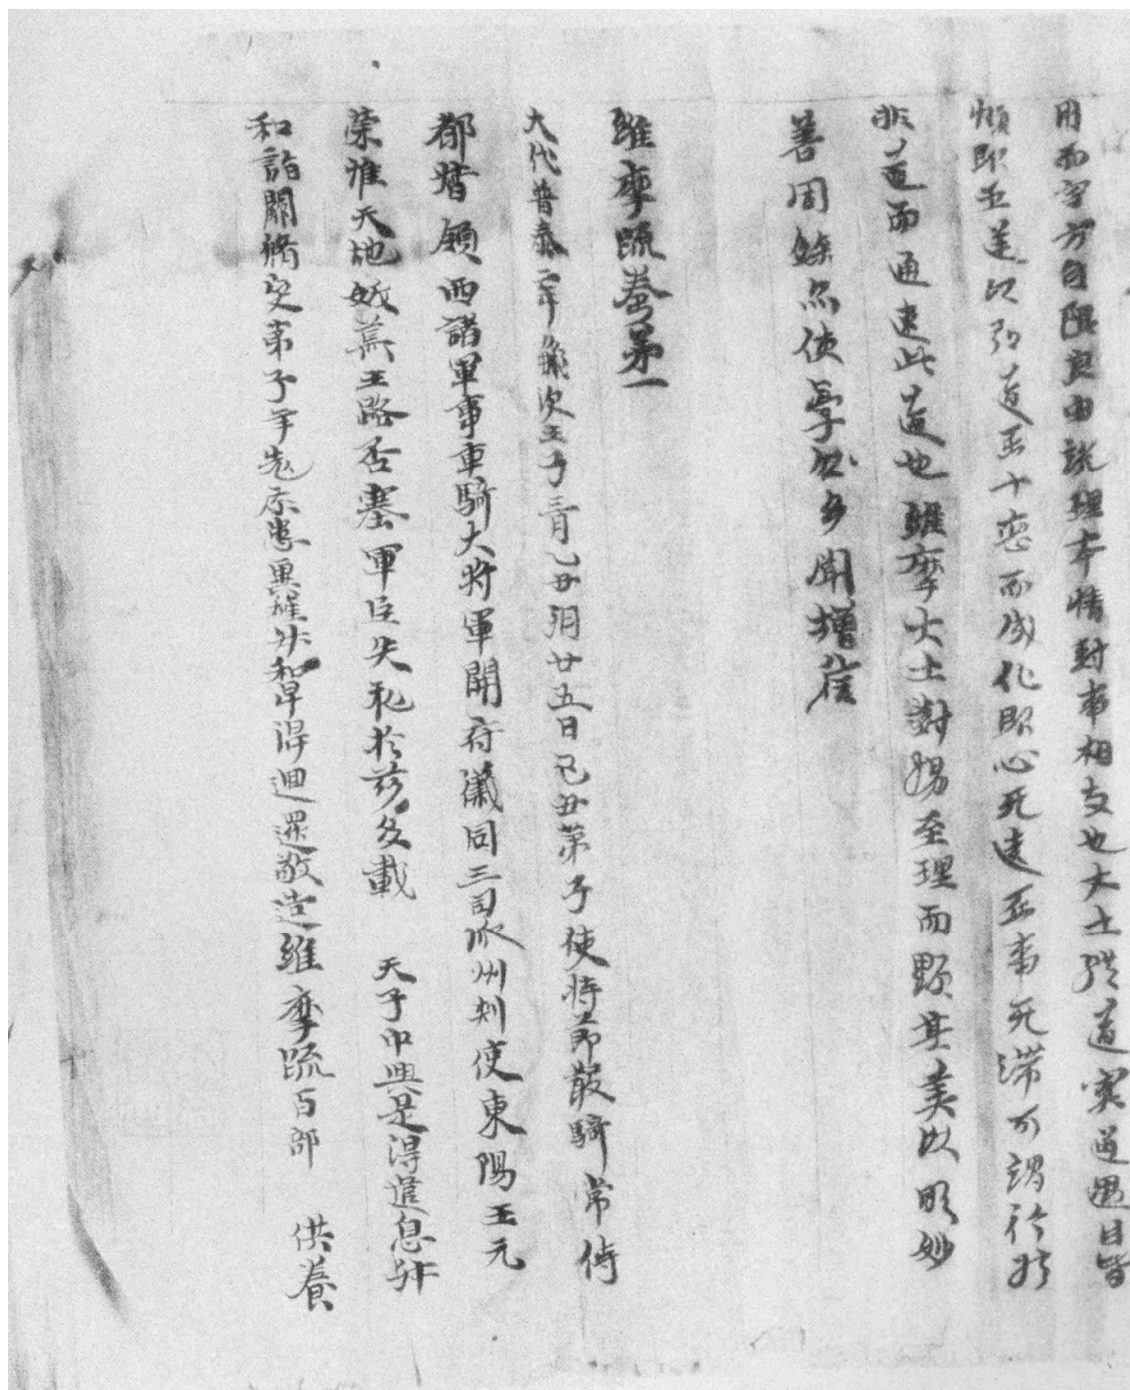 用而方自限良由說理本情對事相交也大士體道實道遇目皆
順即正道以弘道至十惡而成化即心无違至事无滯可謂行於
非道而通達此道也維摩大士對揚至理而顯其美以明妙
善周餘亦使學聞增信
維摩疏卷第一
大代普泰二年歲次壬子三月乙丑朔廿五日己丑弟子使持節散騎常侍
都督領西諸軍事車騎大將軍開府儀同三司瓜州刾使東陽王元
榮惟天地妖荒王路否塞軍臣失礼於茲多載 天子中興是得遣息叔
和詣闕脩受弟子年老疹患冀望叔和早得迴還敬造維摩疏百部 供養